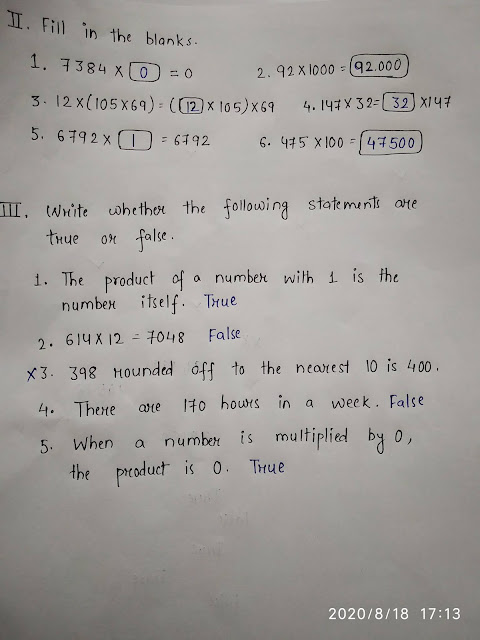 II. Fill in the blanks.
1. 7384 × 0 = 0 2. 92×1000 = 92.000
3. 12×(105×69) = ((12×105)×69 4. 147×32=32×147
5. 6792×1 = 6792 6. 475×100 = 47500
III. Write whether the following statements are
true or false.
1. The product of a number with 1 is the
number itself. True
2. 614×12 = 7048 False
×3. 398 rounded off to the nearest 10 is 400.
4. There are 170 hours in a week. False
5. When a number is multiplied by 0,
the product is 0. True
2020/8/18 17:13